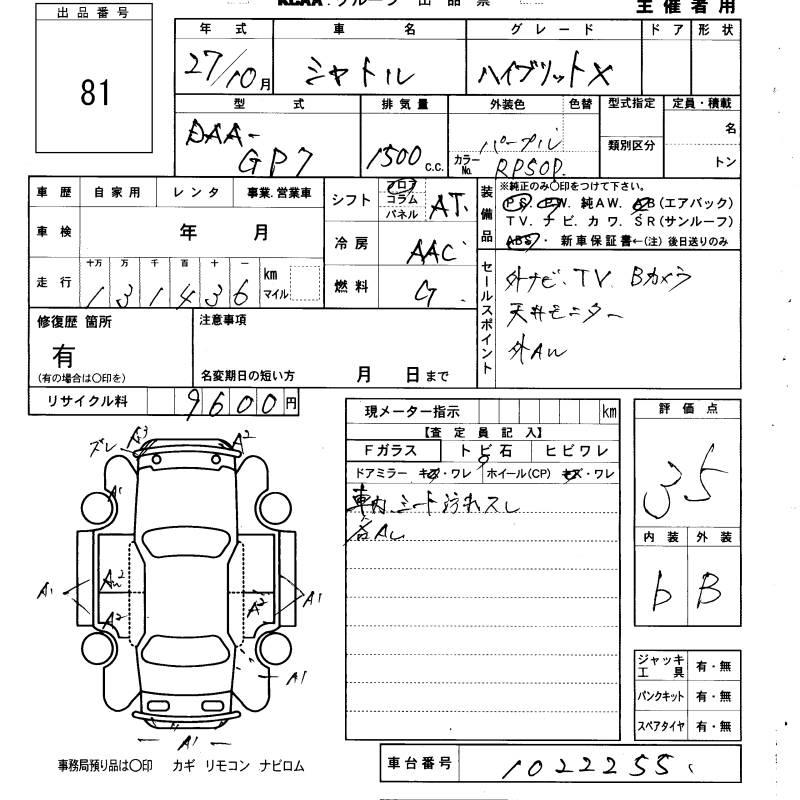 主催者用
出品番号
81
年式 車名 グレード ドア 形状
27/10月 シャトル ハイブリットX
型式 排気量 外装色 色替 型式指定 定員・積載
DAA-GP7 1500 c.c. パープル
カラーNo. RP50P.
類別区分
名
トン
車歴 自家用 レンタ 事業.営業車
車検 年 月
走行 十万 万 千 百 十 一
131436 km マイル
シフト フロア コラム パネル AT.
冷房 AAC
燃料 G.
装備品
※純正のみ〇印をつけて下さい。
PS. PW. 純AW. AB(エアバック)
TV. ナビ. カワ. SR(サンルーフ)
ABS. 新車保証書←(注)後日送りのみ
セールスポイント
外ナビ. TV. Bカメラ
天井モニター
外AW
修復歴 箇所
有
(有の場合は〇印を)
注意事項
名変期日の短い方 月 日まで
リサイクル料 9600円
現メーター指示 km
【査定員記入】
Fガラス トビ石 ヒビワレ
ドアミラー キズ・ワレ ホイール(CP) キズ・ワレ
車内シート汚れスレ
評価点
35
内装 外装
b B
ズレ A2
A1
A1
A2
A2
A1
A1
A1
ジャッキ工具 有・無
パンクキット 有・無
スペアタイヤ 有・無
事務局預り品は〇印 カギ リモコン ナビロム
車台番号 1022255